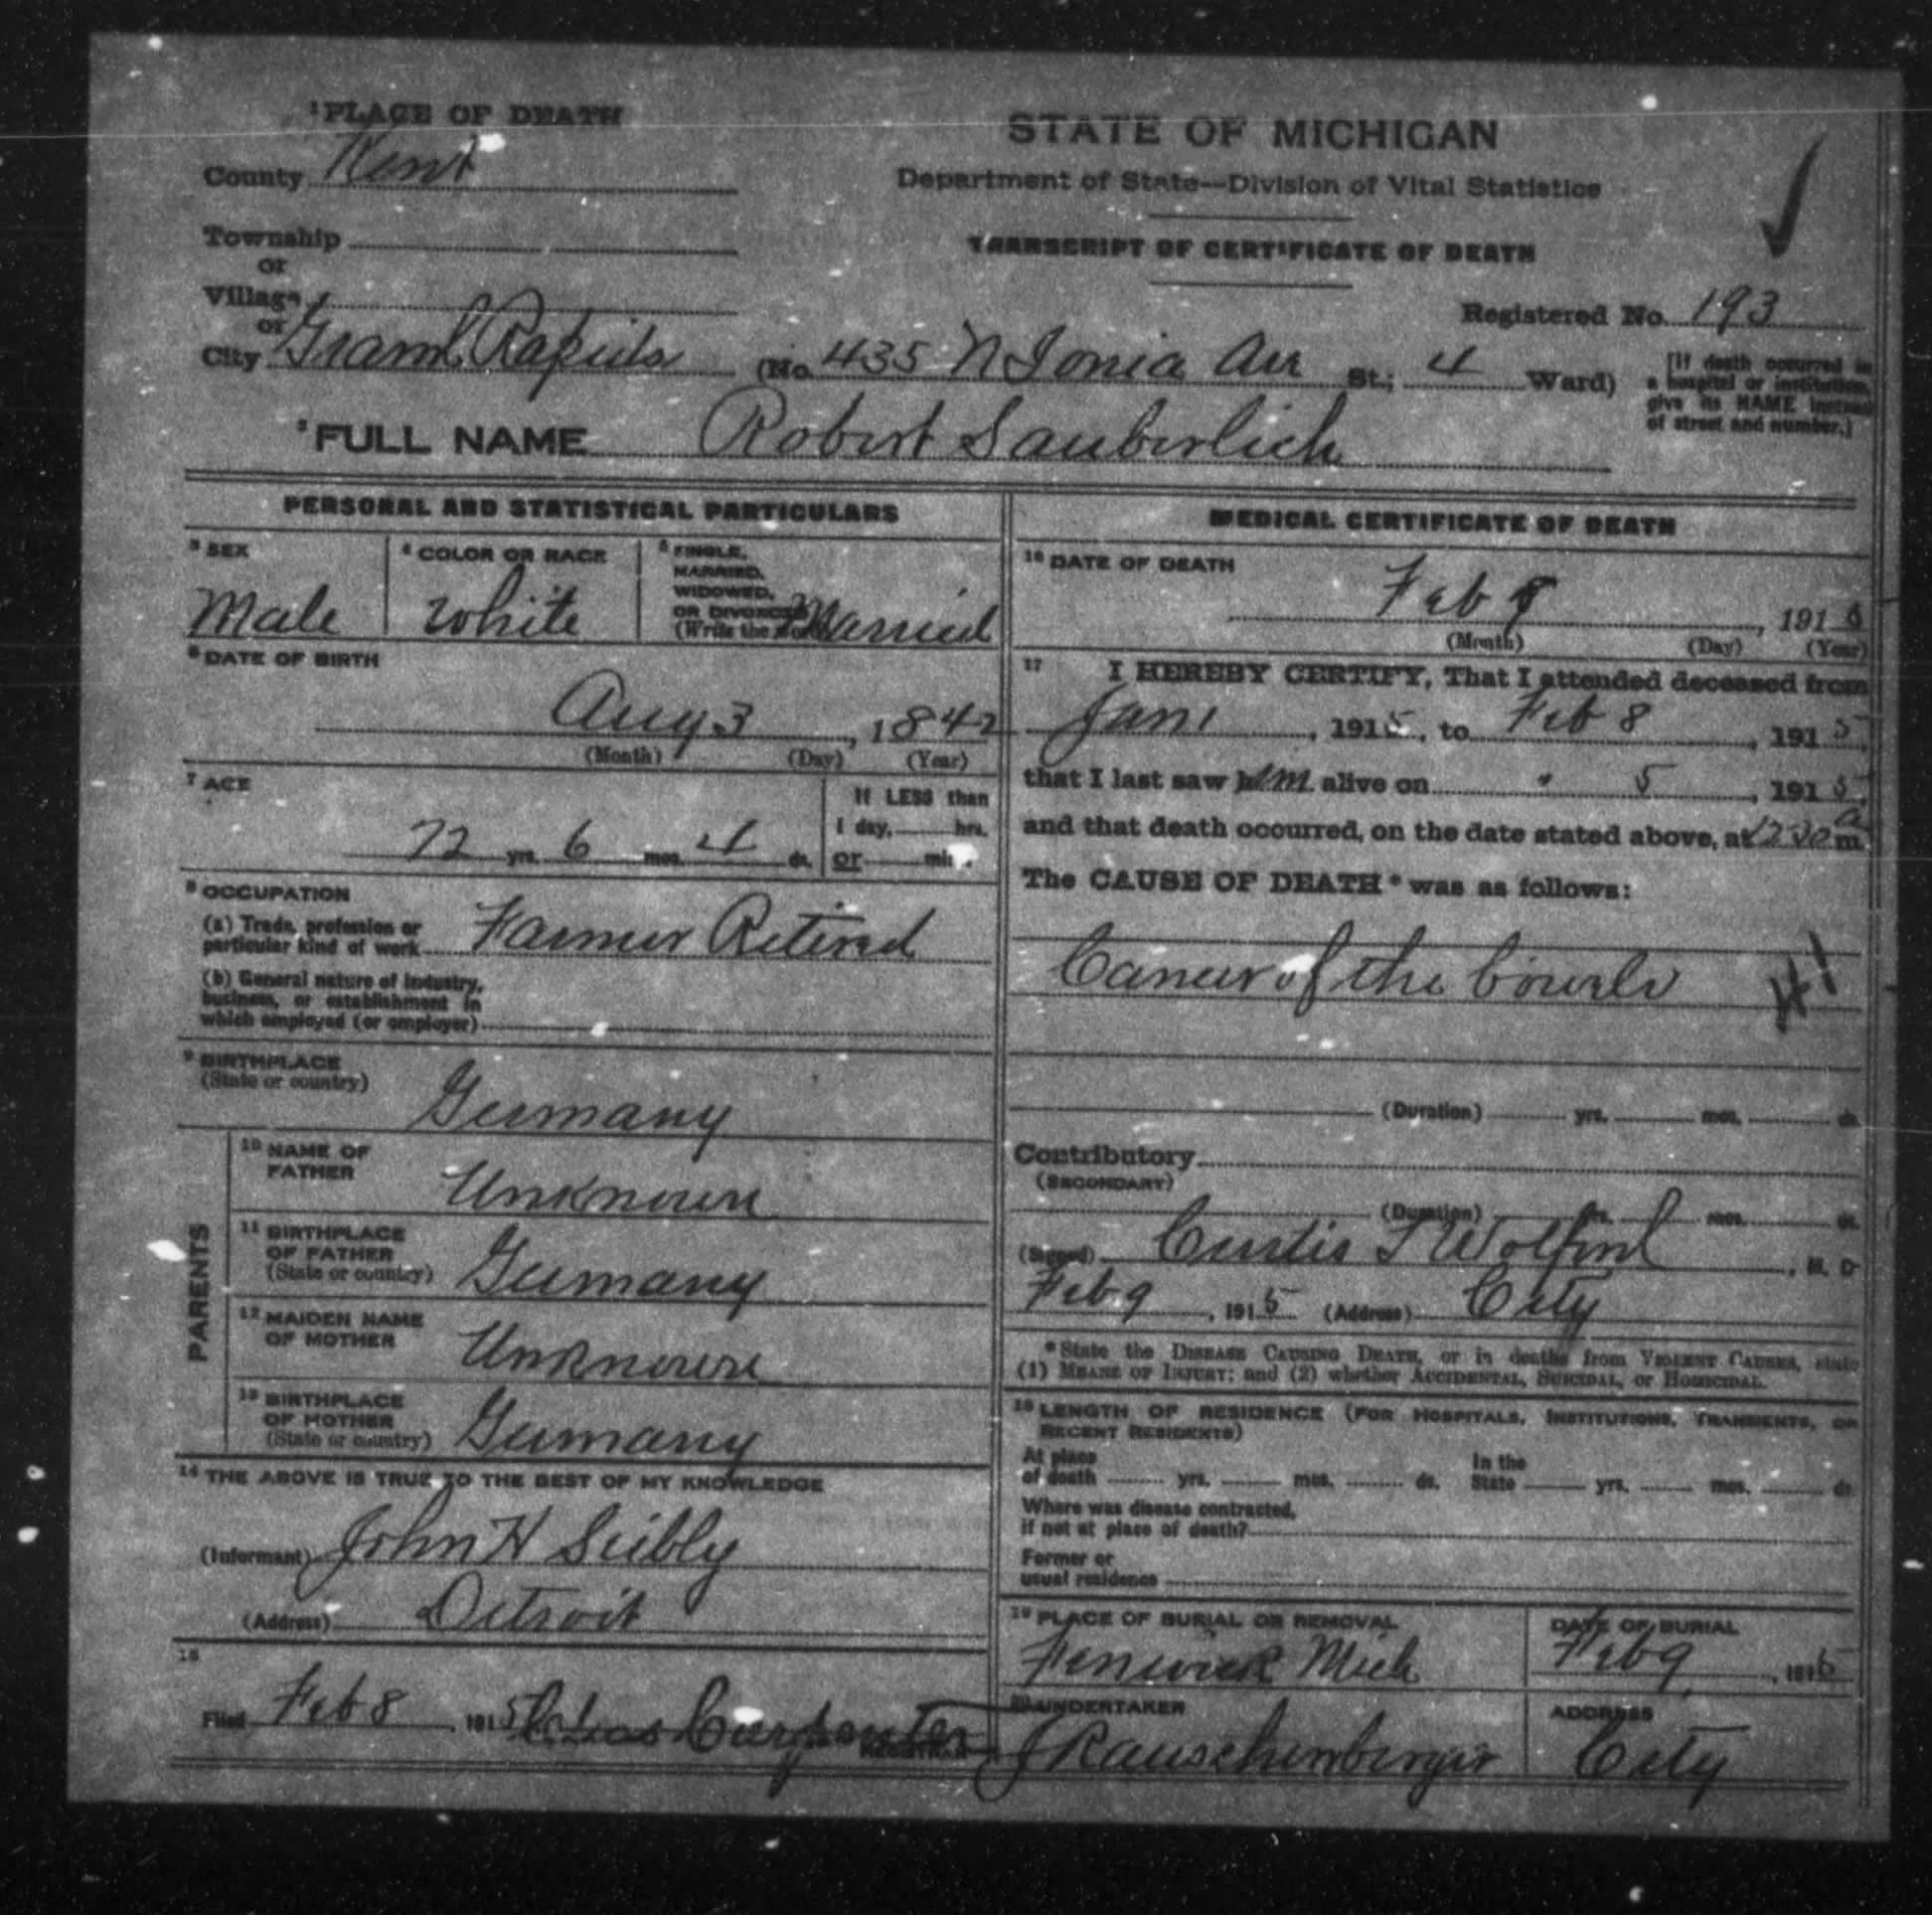 1 PLACE OF DEATH
County Kent
Township
or
Village
or
City Grand Rapids (No. 435 N Ionia Ave St.; 4 Ward)
STATE OF MICHIGAN
Department of State—Division of Vital Statistics
TRANSCRIPT OF CERTIFICATE OF DEATH
Registered No. 193
[If death occurred in
a hospital or institution,
give its NAME instead
of street and number.]
2 FULL NAME Robert Sauberlich
PERSONAL AND STATISTICAL PARTICULARS
3 SEX
Male
4 COLOR OR RACE
White
5 SINGLE,
MARRIED,
WIDOWED,
OR DIVORCED
(Write the word) Married
6 DATE OF BIRTH
Aug 3, 1842
(Month) (Day) (Year)
7 AGE
72 yrs. 6 mos. 4 ds.
If LESS than
1 day, hrs.
or min.
8 OCCUPATION
(a) Trade, profession or
particular kind of work Farmer Retired
(b) General nature of industry,
business, or establishment in
which employed (or employer)
9 BIRTHPLACE
(State or country)
Germany
PARENTS
10 NAME OF
FATHER
Unknown
11 BIRTHPLACE
OF FATHER
(State or country) Germany
12 MAIDEN NAME
OF MOTHER
Unknown
13 BIRTHPLACE
OF MOTHER
(State or country) Germany
14 THE ABOVE IS TRUE TO THE BEST OF MY KNOWLEDGE
(Informant) John H Seibly
(Address) Detroit
15
Filed Feb 8, 1915 Carpenter
REGISTRAR
MEDICAL CERTIFICATE OF DEATH
16 DATE OF DEATH
Feb 8, 1915
(Month) (Day) (Year)
17 I HEREBY CERTIFY, That I attended deceased from
Jan 1, 1915, to Feb 8, 1915,
that I last saw him alive on " 5, 1915,
and that death occurred, on the date stated above, at 12 30 a m.
The CAUSE OF DEATH* was as follows:
Cancer of the bowels 41
(Duration) yrs. mos. ds.
Contributory
(SECONDARY)
(Duration) yrs. mos. ds.
(Signed) Curtis T Wolford, M. D.
Feb 9, 1915 (Address) City
*State the DISEASE CAUSING DEATH, or in deaths from VIOLENT CAUSES, state
(1) MEANS OF INJURY; and (2) whether ACCIDENTAL, SUICIDAL, or HOMICIDAL.
18 LENGTH OF RESIDENCE (FOR HOSPITALS, INSTITUTIONS, TRANSIENTS, OR
RECENT RESIDENTS)
At place
of death yrs. mos. ds. In the
State yrs. mos. ds.
Where was disease contracted,
if not at place of death?
Former or
usual residence
19 PLACE OF BURIAL OR REMOVAL
Fenwick Mich
DATE OF BURIAL
Feb 9, 1915
20 UNDERTAKER
J Rauschenberger
ADDRESS
City